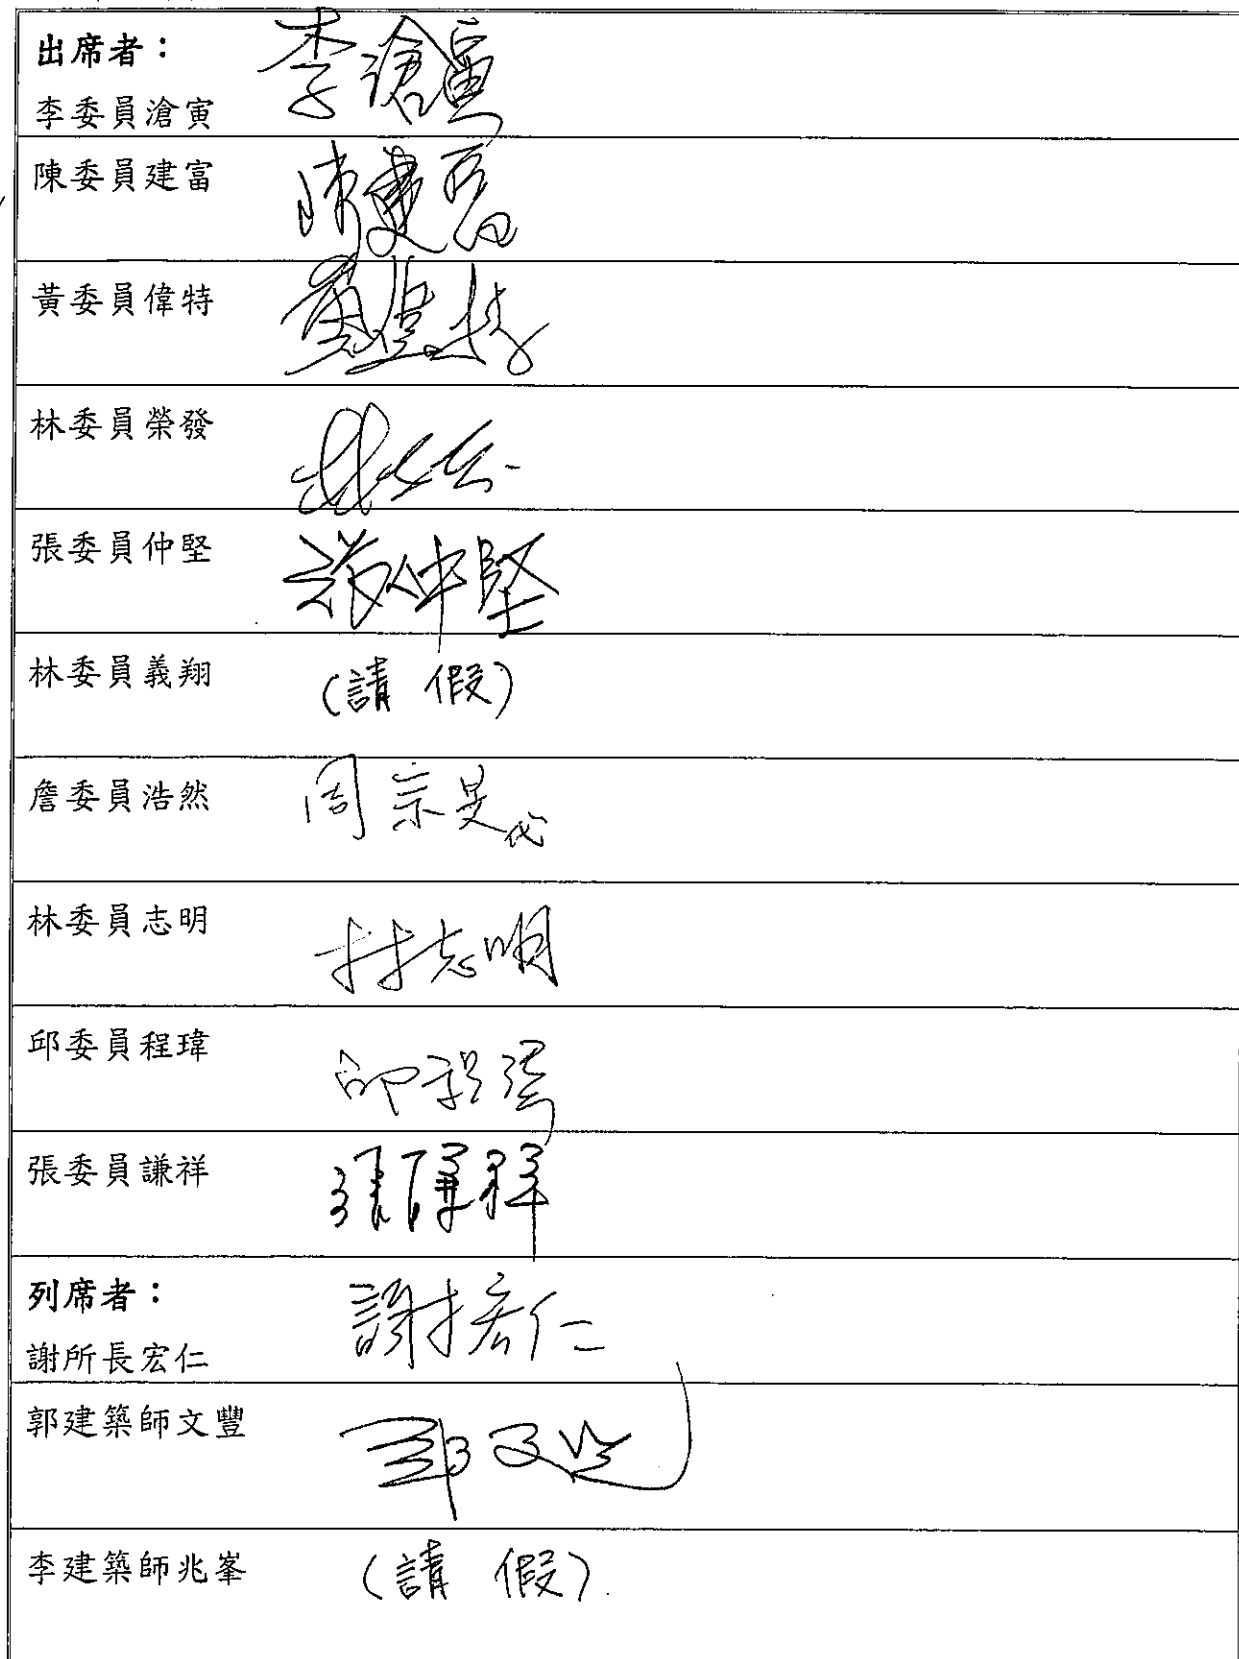 出席者：
李委員滄寅 李滄寅
陳委員建富 陳建富
黃委員偉特 黃偉特
林委員榮發 林
張委員仲堅 張仲堅
林委員義翔 (請 假)
詹委員浩然 周宗旻代
林委員志明 林志明
邱委員程瑋 邱程瑋
張委員謙祥 張謙祥
列席者：
謝所長宏仁 謝宏仁
郭建築師文豐 郭文豐
李建築師兆峯 (請 假)